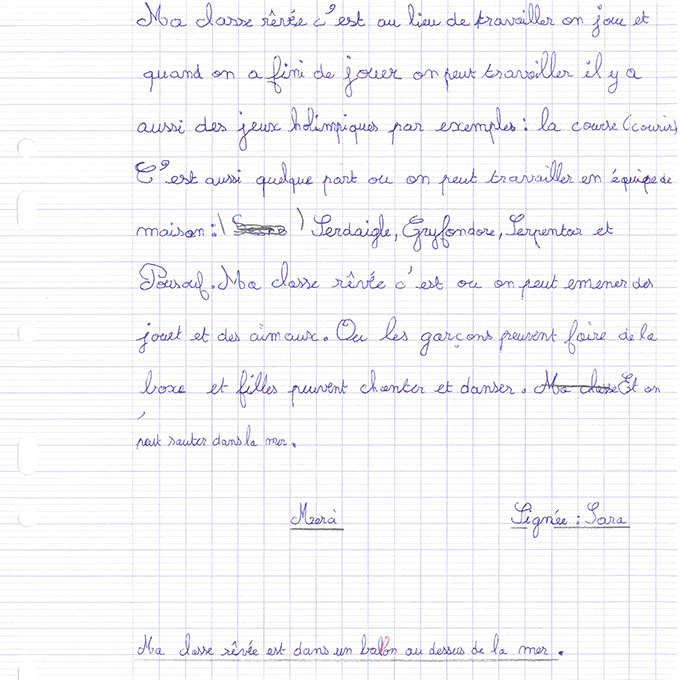 Ma classe rêvée c'est au lieu de travailler on joue et
quand on a fini de jouer on peut travailler il y a
aussi des jeux holimpiques par exemples : la course (courir)
C'est aussi quelque part ou on peut travailler en équipe de
maison : ( ) Serdaigle, Gryfondore, Serpentar et
Pousouf. Ma classe rêvée c'est ou on peut emener des
jouet et des aimaux. Ou les garçons peuvent faire de la
boxe et filles peuvent chanter et danser. Ma classe Et on
peut sauter dans la mer.
Signée : Sara
Ma classe rêvée est dans un ballon au dessus de la mer.